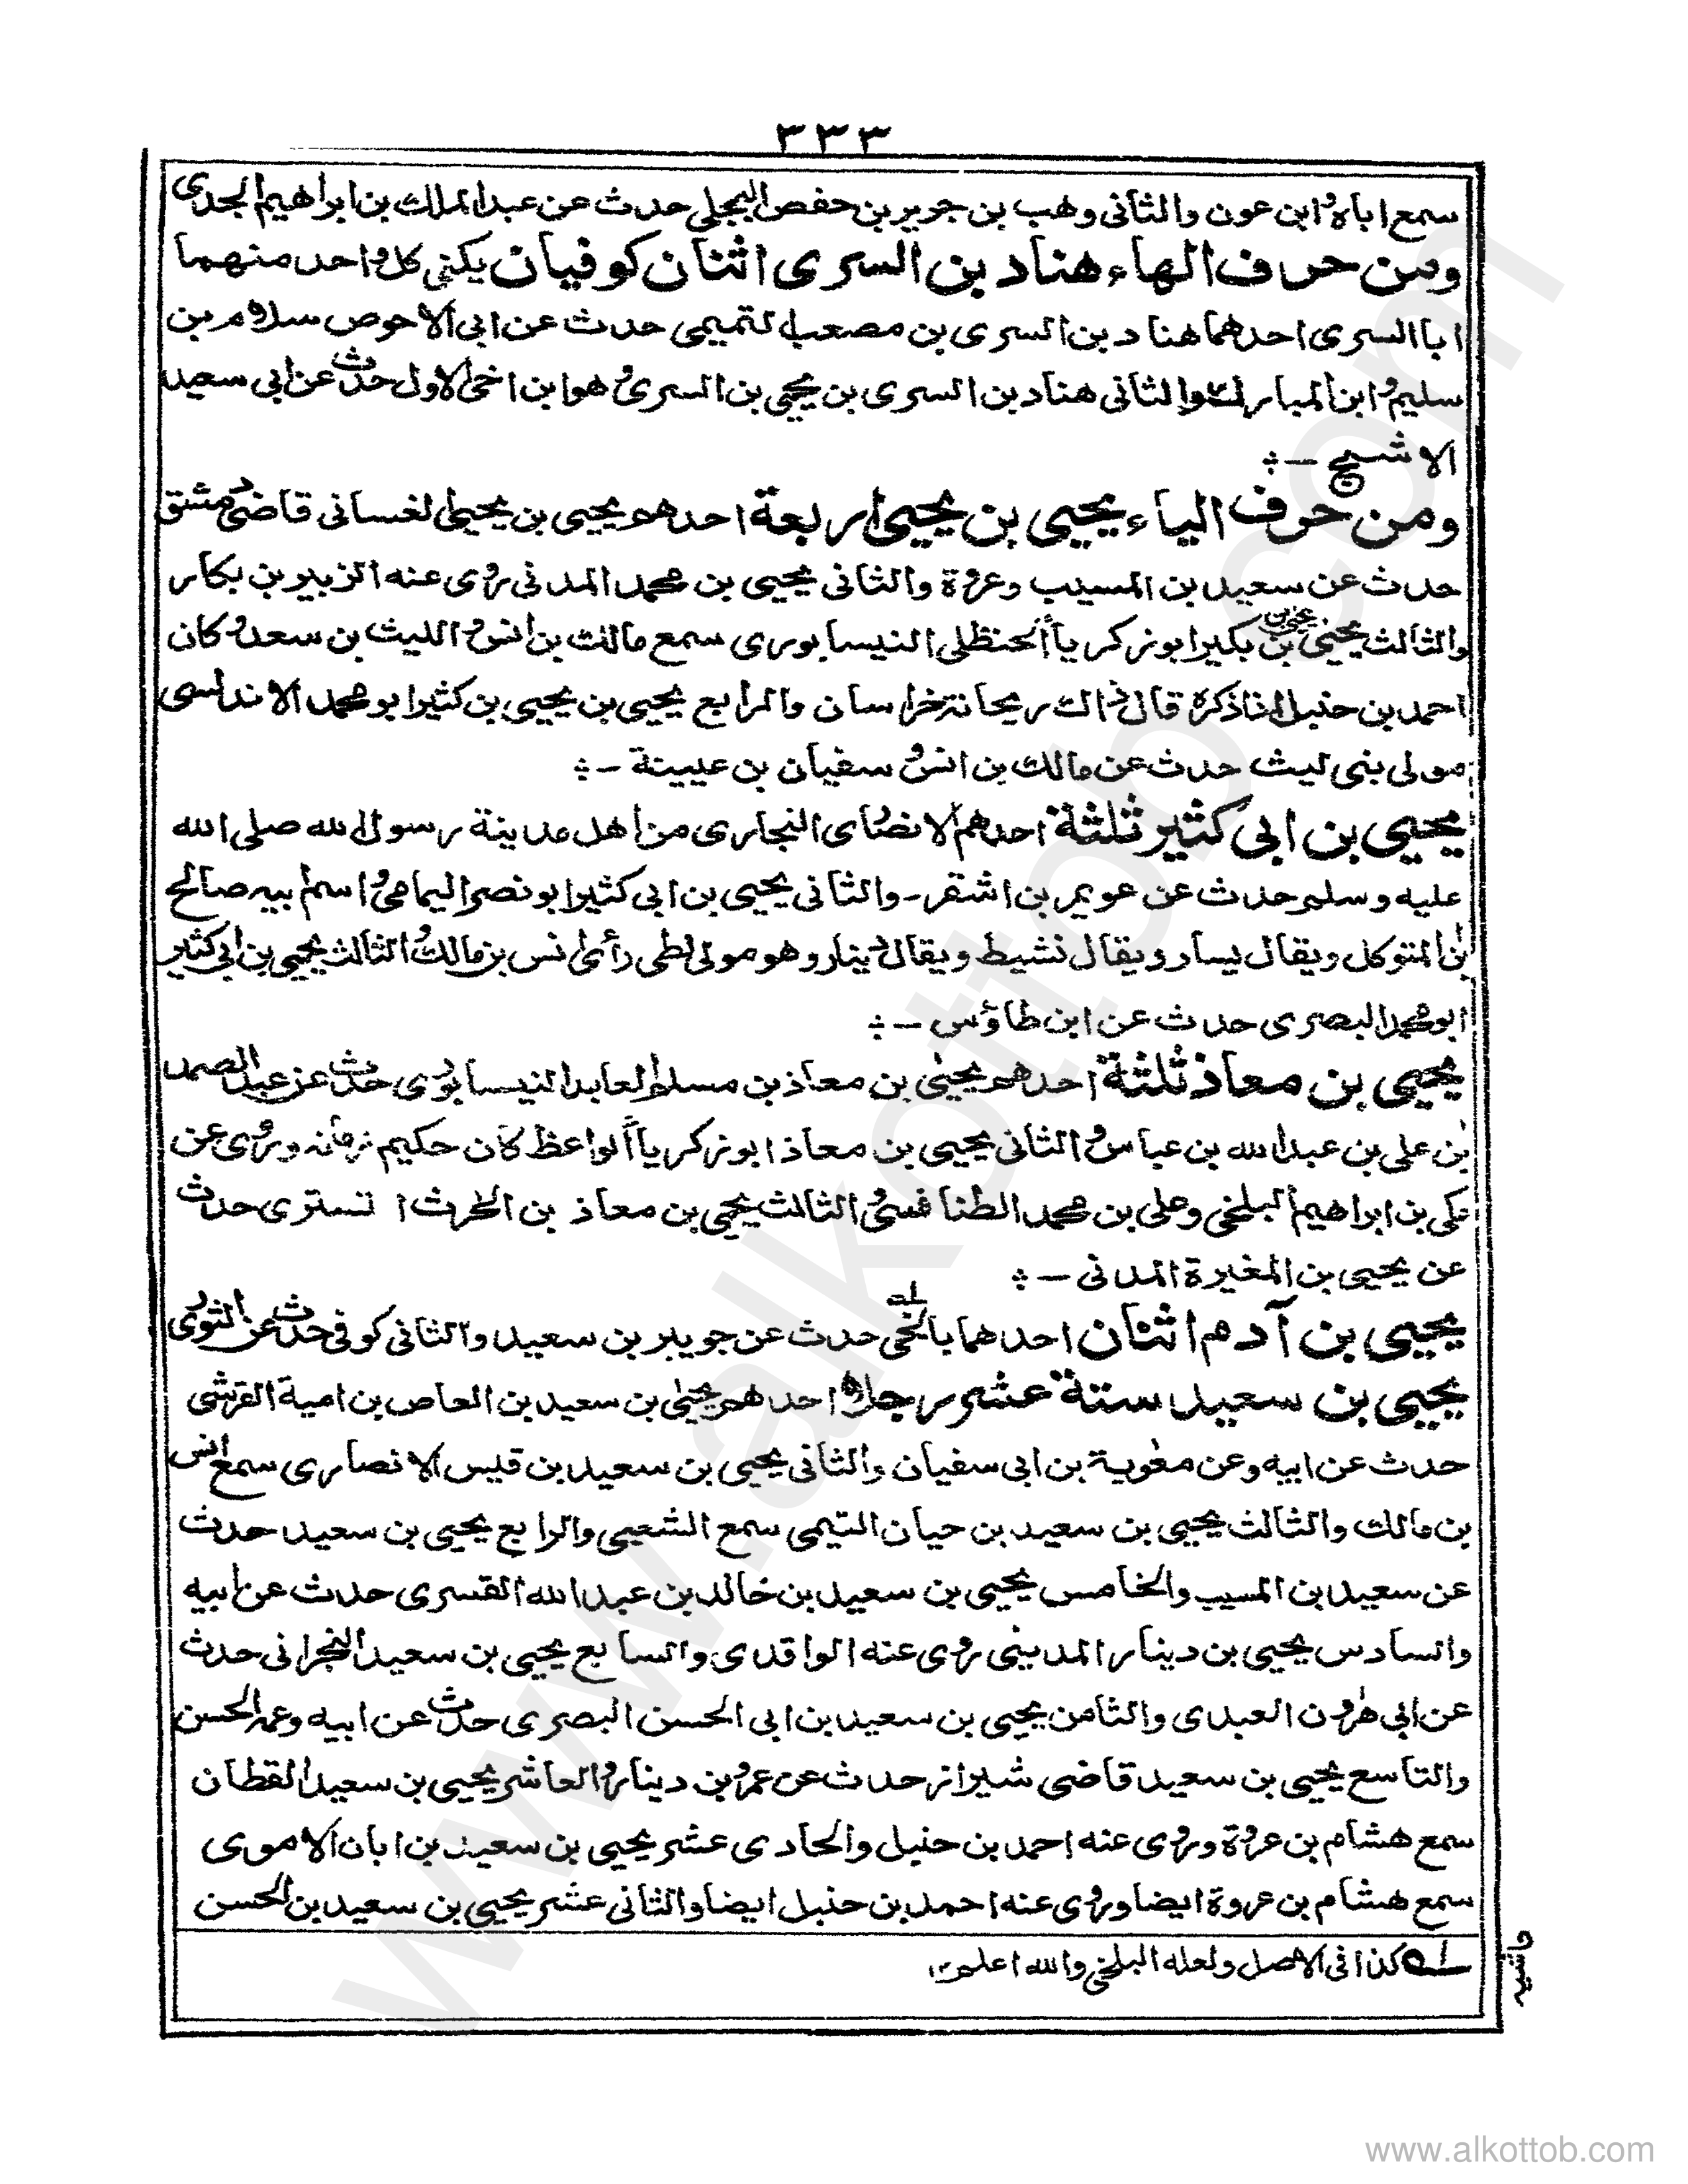 ٣٣٣
سمع اباه وابن عون والثانى وهب بن جرير بن حفص البجلى حدث عن عبد الملك بن ابراهيم الجدى
ومن حرف الهاء هناد بن السرى اثنان كوفيان يكنى كل واحد منهما
ابا السرى احدهما هناد بن السرى بن مصعب التميمى حدث عن ابى الاحوص سلام بن
سليم وابن المبارك والثانى هناد بن السرى بن يحيى بن السرى وهو ابن اخى الاول حدث عن ابى سعيد
الاشج -
ومن حرف الياء يحيى بن يحيى اربعة احدهم يحيى بن يحيى الغسانى قاضى دمشق
حدث عن سعيد بن المسيب وعروة والثانى يحيى بن محمد المدنى روى عنه الزبير بن بكار
والثالث يحيى بن يحيى بن بكير ابو زكريا الحنظلى النيسابورى سمع مالك بن انس والليث بن سعد وكان
احمد بن حنبل اذا ذكره قال ذاك ريحانة خراسان والرابع يحيى بن يحيى بن كثير ابو محمد الاندلسى
مولى بنى ليث حدث عن مالك بن انس وسفيان بن عيينة -
يحيى بن ابى كثير ثلثة احدهم الانصارى النجارى من اهل مدينة رسول الله صلى الله
عليه وسلم حدث عن عويمر بن اشقر - والثانى يحيى بن ابى كثير ابو نصر اليمامى واسم ابيه صالح
بن المتوكل ويقال يسار ويقال نشيط ويقال دينار وهو مولى لطى رأى انس بن مالك والثالث يحيى بن ابى كثير
ابو محمد البصرى حدث عن ابن طاؤس -
يحيى بن معاذ ثلثة احدهم يحيى بن معاذ بن مسلم العابد النيسابورى حدث عن عبد الصمد
بن على بن عبد الله بن عباس والثانى يحيى بن معاذ ابو زكريا الواعظ كان حكيم زمانه وروى عن
مكى بن ابراهيم البلخى وعلى بن محمد الطنافسى والثالث يحيى بن معاذ بن الحرث التسترى حدث
عن يحيى بن المغيرة المدنى -
يحيى بن آدم اثنان احدهما بالخى له حدث عن جويبر بن سعيد والثانى كوفى حدث عن الثورى
يحيى بن سعيد ستة عشر رجلا احدهم يحيى بن سعيد بن العاص بن امية القرشى
حدث عن ابيه وعن معوية بن ابى سفيان والثانى يحيى بن سعيد بن قيس الانصارى سمع انس
بن مالك والثالث يحيى بن سعيد بن حيان التيمى سمع الشعبى والرابع يحيى بن سعيد حدث
عن سعيد بن المسيب والخامس يحيى بن سعيد بن خالد بن عبد الله القسرى حدث عن ابيه
والسادس يحيى بن دينار المدينى روى عنه الواقدى والسابع يحيى بن سعيد النجرانى حدث
عن ابى هرون العبدى والثامن يحيى بن سعيد بن ابى الحسن البصرى حدث عن ابيه وعمه الحسن
والتاسع يحيى بن سعيد قاضى شيراز حدث عن عمرو بن دينار والعاشر يحيى بن سعيد القطان
سمع هشام بن عروة وروى عنه احمد بن حنبل والحادى عشر يحيى بن سعيد بن ابان الاموى
سمع هشام بن عروة ايضا وروى عنه احمد بن حنبل ايضا والثانى عشر يحيى بن سعيد بن الحسن
له كذا فى الاصل ولعله البلخى والله اعلم ١٢
حاشيه
www.alkottob.com
www.alkottob.com